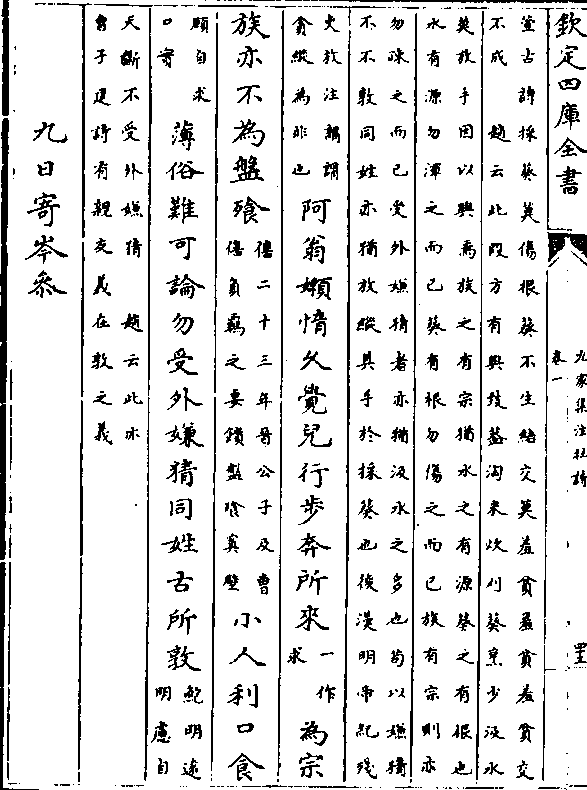 欽定四庫全書
九家集注杜詩
卷一
筌古詩採葵莫傷根葵不生結交莫羞貧羞貧羞貧交
不成 趙云此段方有興後蓋淘米炊刈葵烹少汲水
莫放手因以興焉族之有宗猶水之有源葵之有根也
水有源勿渾之而已葵有根勿傷之而已族有宗則亦
勿疎之而已受外嫌猜者亦猶汲水之多也苟以嫌猜
不不敦同姓亦猶放縱其手於採葵也後漢明帝紀殘
吏放注謂
貪縱為非也
阿翁嬾惰久覺兒行步奔所來 一作求 為宗
族亦不為盤飱
僖二十三年晉公子及曹
僖負羈之妻饋盤飱寘璧
小人利口食
顧自求
口實
薄俗難可論勿受外嫌猜同姓古所敦
鮑明逺
明慮自
天斷不受外嫌猜 趙云此亦
曹子建詩有親交義在敦之義
九日寄岑參